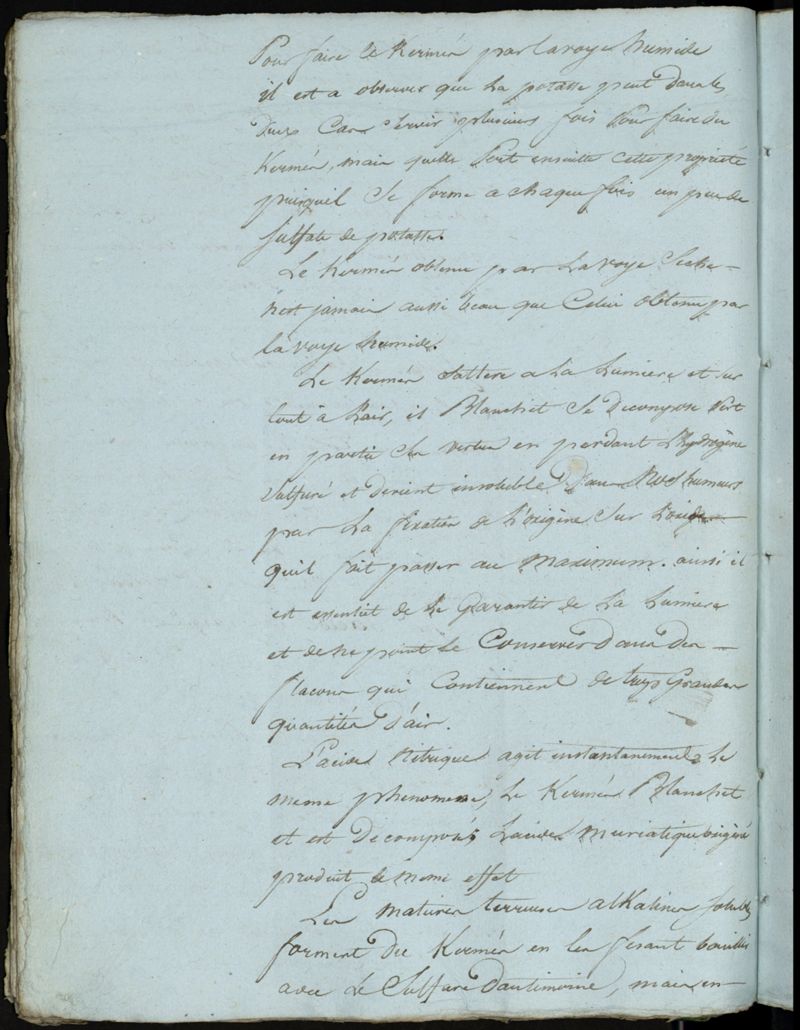 Pour faire le Kermés par la voye humide
il est a observer que la potasse peut dans les
deux cas servir plusieurs fois pour faire du
Kermés, mais quelle perd ensuitte cette propriété
puisquil se forme a chaque fois un peu de
sulfate de potasse.
Le Kermés obtenu par la voye Seche
nest jamais aussi beau que Celui obtenu par
la voye humide.
Le Kermés saltere a La Lumiere et sur
tout à Lair, il Blanchit Se Decompose
en partie Sa vertu en perdant L'hydrogène
sulfuré et devient insoluble Dans Nos humeurs
par La fixation de L'oxigène Sur Loxide
quil fait passer au Maximum. aussi il
est essentiel de Le Garantir de La Lumiere
et de ne point le Conserver Dans Des
flacons qui Contiennent de trops Grandes
quantités D'air.
L'acide Nitrique agit instantanement Le
meme phenomene, Le Kermés Blanchit
et est Décomposé, Lacide Muriatique oxigéné
produit le meme effet
Les matieres terreuses alKalines solubles
forment Du Kermés en les fesant bouillir
avec Le Sulfure Dantimoine, mais en